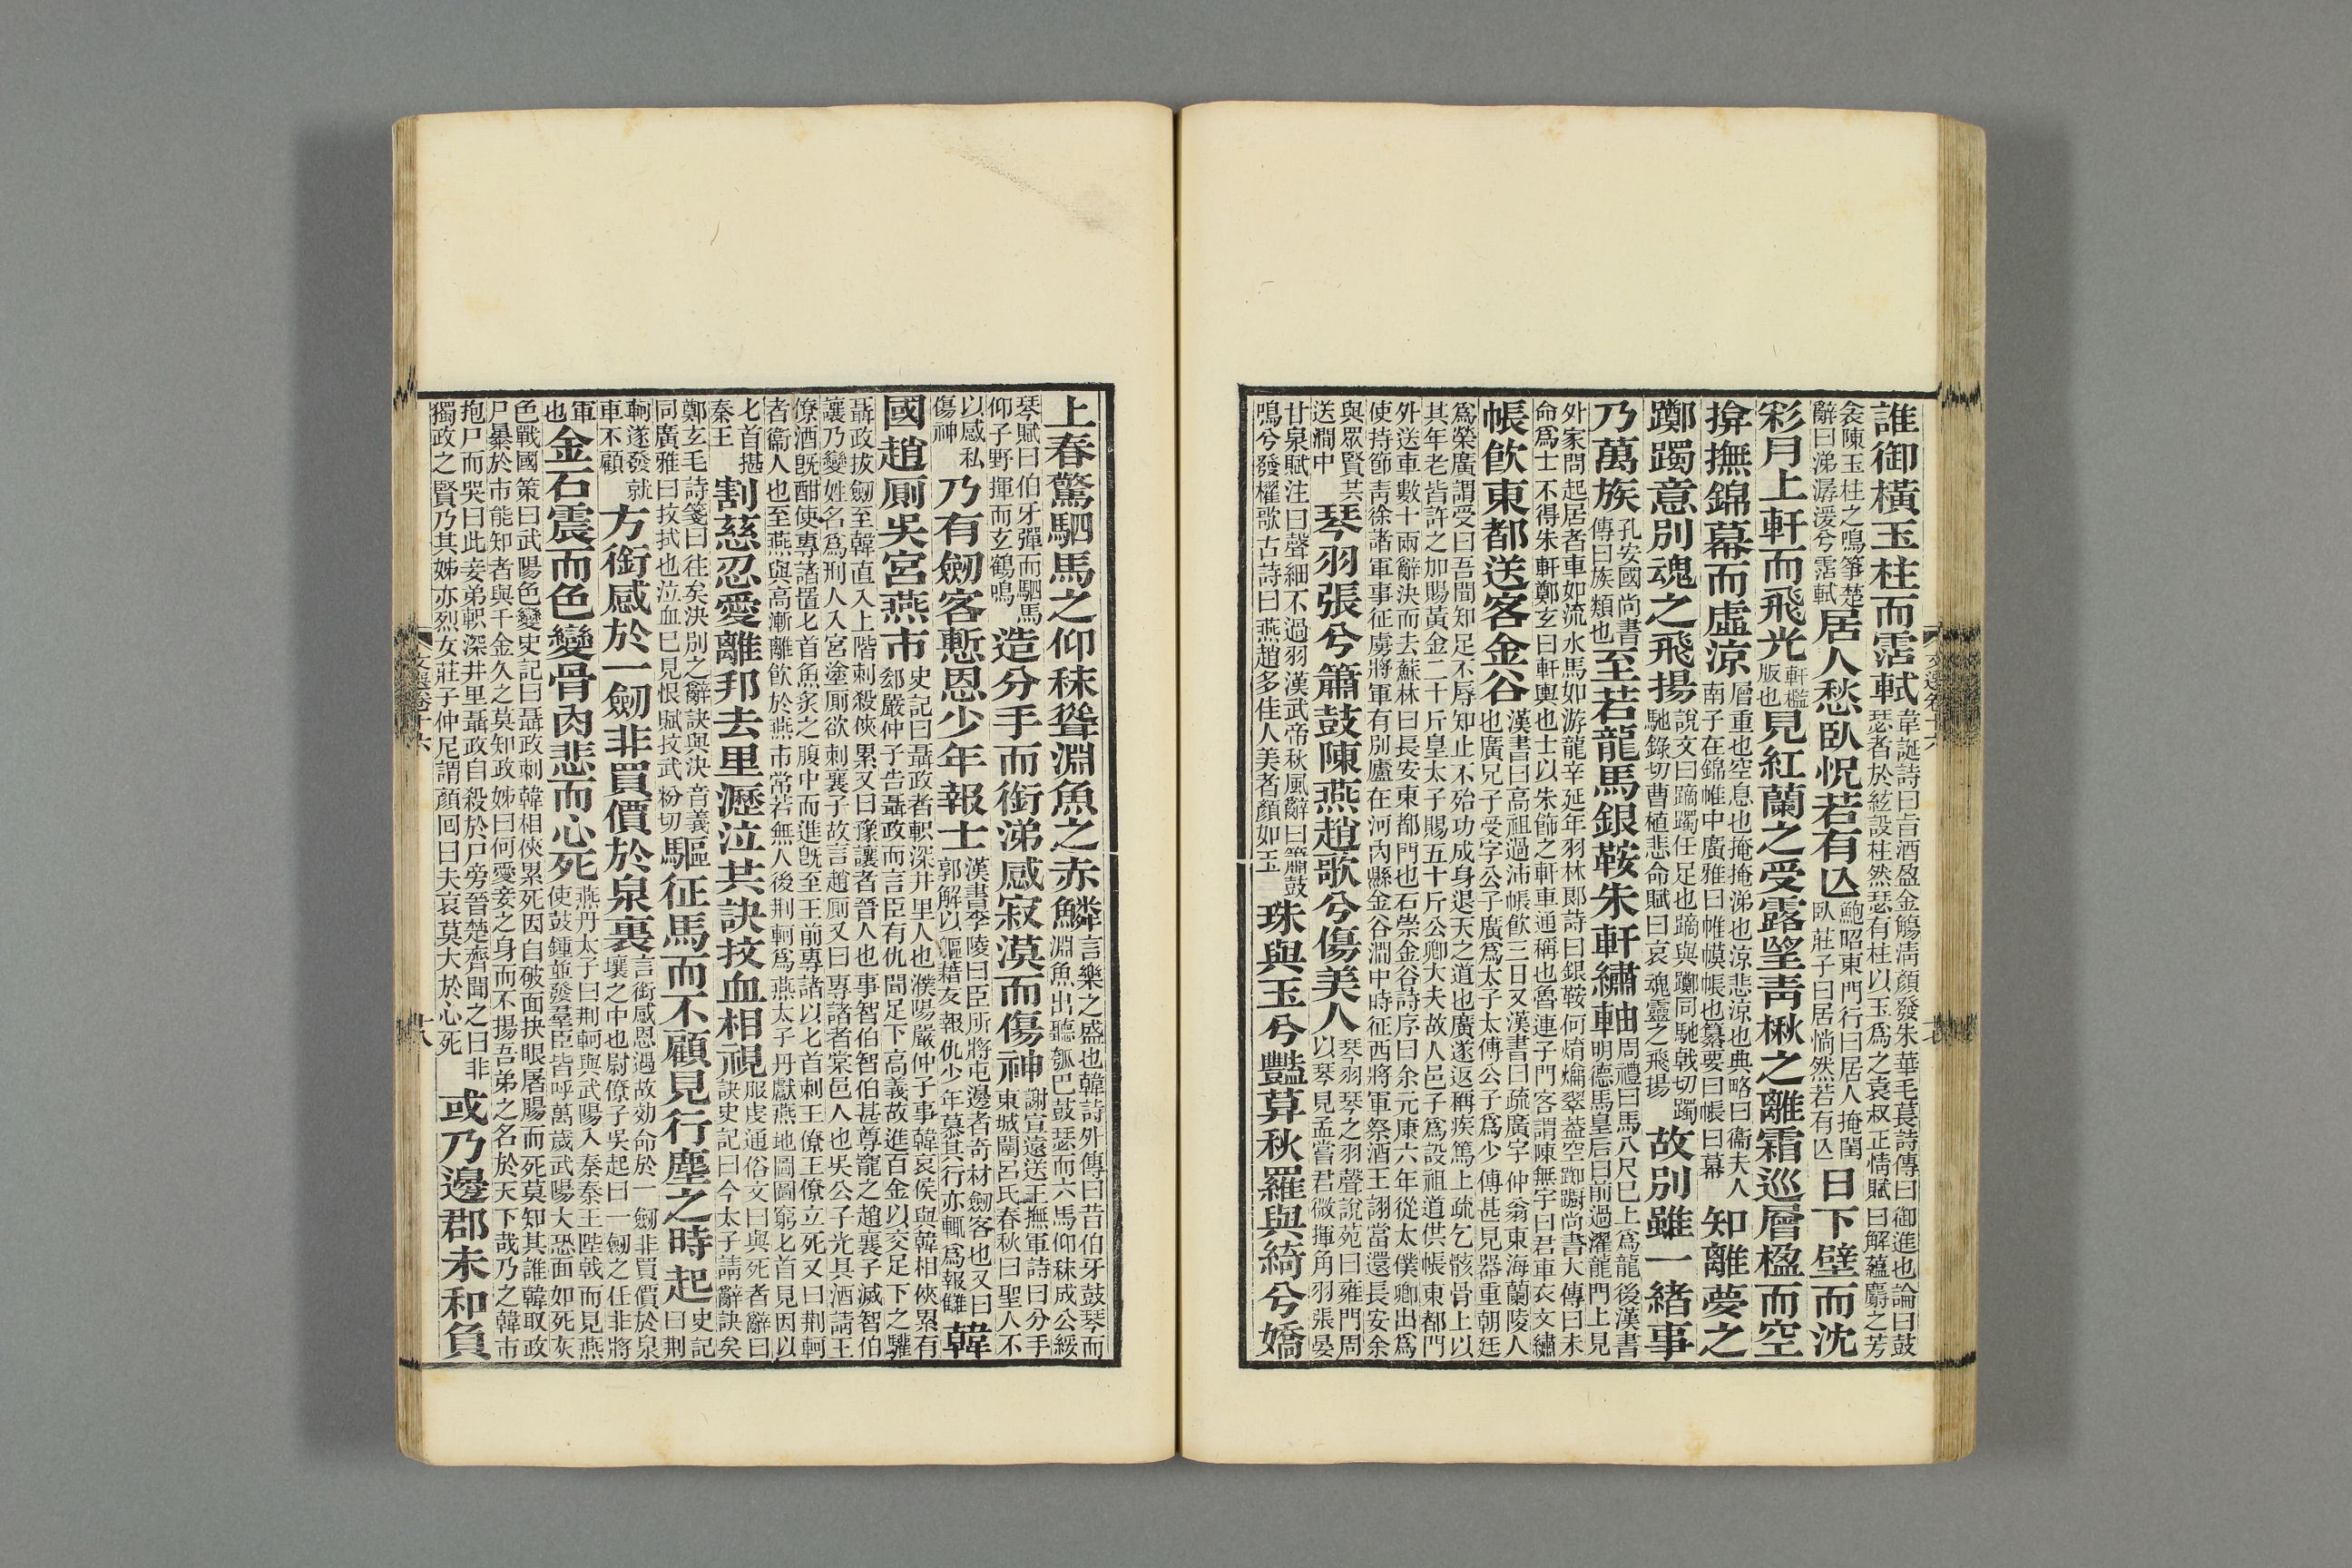 誰御橫玉柱而霑軾韋誕詩曰旨酒盈金觴淸顏發朱華毛萇詩傳曰御進也論曰鼓瑟者於絃設柱然瑟有柱以玉爲之袁叔正情賦曰解蘊麝之芳
衾陳玉柱之鳴箏楚辭曰涕潺湲兮霑軾居人愁臥怳若有亾鮑昭東門行曰居人掩閨臥莊子曰居惝然若有亾日下壁而沈
彩月上軒而飛光軒檻版也見紅蘭之受露望靑楸之離霜巡層楹而空
揜撫錦幕而虛涼層重也空息也掩掩涕也涼悲涼也典略曰衞夫人南子在錦帷中廣雅曰帷幙帳也纂要曰帳曰幕知離夢之
躑躅意別魂之飛揚說文曰蹢躅住足也蹢與躑同馳戟切躅馳錄切曹植悲命賦曰哀魂靈之飛揚故別雖一緒事
乃萬族孔安國尙書傳曰族類也至若龍馬銀鞍朱軒繡軸周禮曰馬八尺已上爲龍後漢書明德馬皇后曰前過濯龍門上見
外家問起居者車如流水馬如游龍辛延年羽林郎詩曰銀鞍何煜爚翠葢空踟躕尙書大傳曰未命爲士不得朱軒鄭玄曰軒輿也士以朱飾之軒車通稱也魯連子門客謂陳無宇曰君車衣文繡
帳飮東都送客金谷漢書曰高祖過沛帳飮三日又漢書曰疏廣字仲翁東海蘭陵人也廣兄子受字公子廣爲太子太傅公子爲少傅甚見器重朝廷
爲榮廣謂受曰吾聞知足不辱知止不殆功成身退天之道也廣遂返稱疾篤上疏乞骸骨上以其年老皆許之加賜黃金二十斤皇太子賜五十斤公卿大夫故人邑子爲設祖道供帳東都門
外送車數十兩辭決而去蘇林曰長安東都門也石崇金谷詩序曰余元康六年從太僕卿出爲使持節靑徐諸軍事征虜將軍有別廬在河內縣金谷澗中時征西將軍祭酒王詡當還長安余
與眾賢共送澗中琴羽張兮簫鼓陳燕趙歌兮傷美人琴羽琴之羽聲說苑曰雍門周以琴見孟嘗君微揮角羽張晏
甘泉賦注曰聲細不過羽漢武帝秋風辭曰簫鼓鳴兮發櫂歌古詩曰燕趙多佳人美者顏如玉珠與玉兮豔暮秋羅與綺兮嬌
上春驚駟馬之仰秣聳淵魚之赤鱗言樂之盛也韓詩外傳曰昔伯牙鼓琴而淵魚出聽瓠巴鼓瑟而六馬仰秣成公綏
琴賦曰伯牙彈而駟馬仰子野揮而玄鶴鳴造分手而銜涕感寂漠而傷神謝宣遠送王撫軍詩曰分手東城闉呂氏春秋曰聖人不
以感私傷神乃有劒客慙恩少年報士漢書李陵曰臣所將屯邊者奇材劒客也又曰郭解以軀藉友報仇少年慕其行亦輒爲報讎韓
國趙厠吳宮燕市史記曰聶政者軹深井里人也濮陽嚴仲子事韓哀侯與韓相俠累有郄嚴仲子告聶政而言臣有仇聞足下高義故進百金以交足下之驩
聶政拔劒至韓直入上階刺殺俠累又曰豫讓者晉人也事智伯智伯甚尊寵之趙襄子滅智伯讓乃變姓名爲刑人入宮塗厠欲刺襄子故言趙厠又曰專諸者棠邑人也吳公子光具酒請王
僚酒旣酣使專諸置匕首魚炙之腹中而進旣至王前專諸以匕首刺王僚王僚立死又曰荆軻者衞人也至燕與高漸離飮於燕市常若無人後荆軻爲燕太子丹獻燕地圖圖窮匕首見因以
匕首揕秦王割慈忍愛離邦去里瀝泣共訣抆血相視訣史記曰今太子請辭訣矣服虔通俗文曰與死者辭曰
鄭玄毛詩箋曰往矣決別之辭訣與決音義同廣雅曰抆拭也泣血已見恨賦抆武粉切驅征馬而不顧見行塵之時起史記曰荆
軻遂發就車不顧方銜感於一劒非買價於泉裏言銜感恩遇故効命於一劒非買價於泉壤之中也尉僚子吳起曰一劒之任非將
軍也金石震而色變骨肉悲而心死燕丹太子曰荆軻與武陽入秦秦王陛戟而見燕使鼓鍾並發羣臣皆呼萬歲武陽大恐面如死灰
色戰國策曰武陽色變史記曰聶政刺韓相俠累死因自破面抉眼屠腸而死莫知其誰韓取政尸暴於市能知者與千金久之莫知政姊曰何愛妾之身而不揚吾弟之名於天下哉乃之韓市
抱尸而哭曰此妾弟軹深井里聶政自殺於尸旁晉楚齊聞之曰非獨政之賢乃其姊亦烈女莊子仲尼謂顏回曰夫哀莫大於心死或乃邊郡未和負